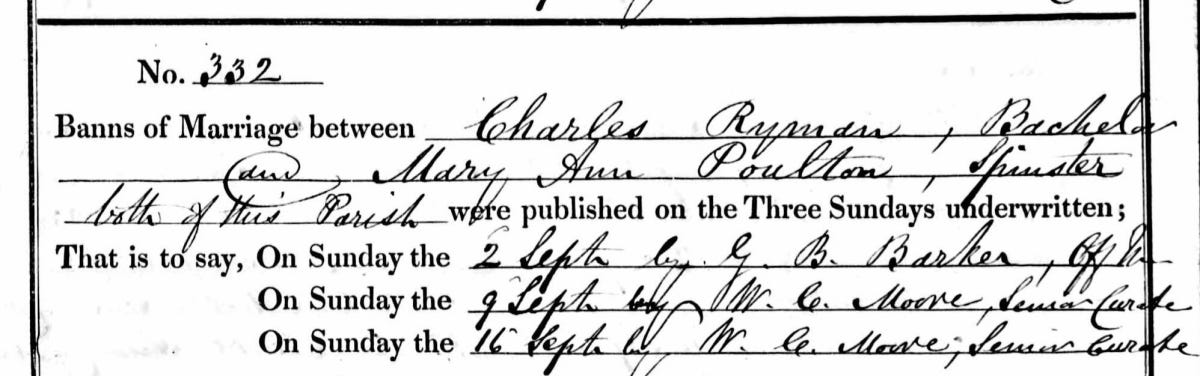 No. 332
Banns of Marriage between Charles Ryman, Bachelor
and Mary Ann Poulton, Spinster
both of this Parish were published on the Three Sundays underwritten;
That is to say, On Sunday the 2 Sept by G. B. Barker, Off
On Sunday the 9 Sept by W. C. Moore, Senior Curate
On Sunday the 16 Sept by W. C. Moore, Senior Curate